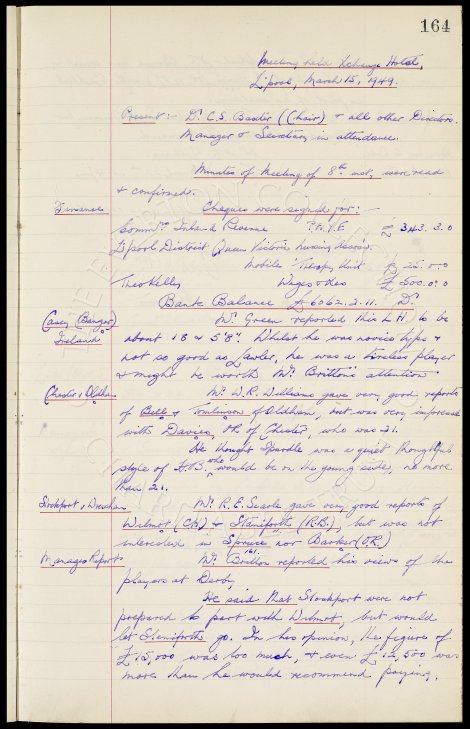 164
Meeting held Xchange Hotel,
L'pool, March 15, 1949.
Present:- Dr. C.S. Baxter (Chair) & all other Directors.
Manager & Secretary in attendance.
Minutes of Meeting of 8th inst, were read
& confirmed.
Finance Cheques were signed for:-
Inland Revenue P.A.Y.E £ 343.3.0
L'pool District Queen Victoria Nursing Assocn.
Mobile Therapy Unit 25.0.0
Theo Kelly Wages & Exs £ 500.0.0
Bank Balance £6062.2.11. Dr.
Casey (Bangor) Mr. Green reported this L.H. to be
Ireland about 18 & 5'8". Whilst he was novice type &
not so good as Lawler, he was a tireless player
& might be worth Mr. Britton's attention
Chester v Oldham Mr. W.R. Williams gave very good reports
of Bell & Tomlinson of Oldham, but was very impressed
with Davies, of Chester, who was 21.
He thought Spurdle was a quiet thoughtful
style of F.B. who would be on the young side, no more
than 21.
Stockport v Wrexham Mr. R.E. Searle gave very good reports of
Wilmot (Ch.) & Staniforth (R.B.), but was not
interested in Spruce nor Barker (O.R.)
Managers Report. Mr. Britton reported his views of the
players at Derby,
He said that Stockport were not
prepared to part with Wilmot, but would
let Staniforth go. In his opinion, the figure of
£15,000 was too much, & even £12,500 was
more than he would recommend paying.